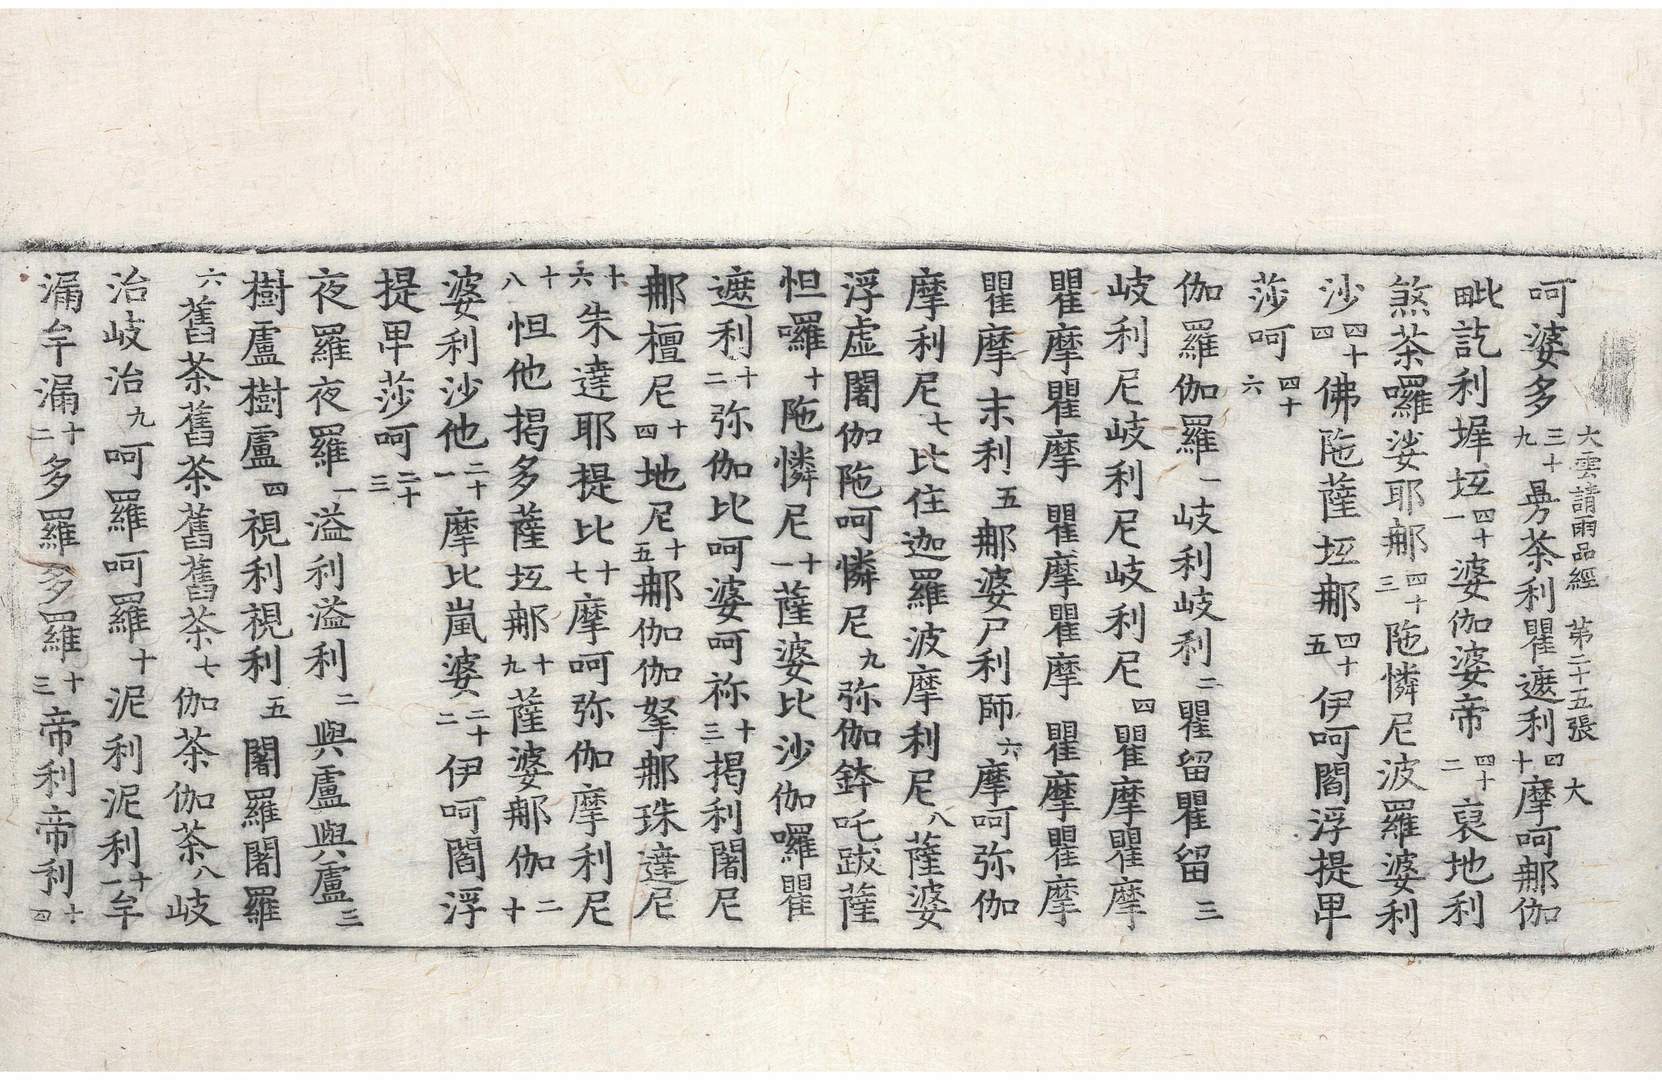 大雲請雨品經 第二十五張 大
呵婆多三十九茶利瞿遮利四十摩呵那伽
毗訖利墀坻四十一婆伽婆帝四十二裒地利
煞茶囉娑耶那四十三陁憐尼波羅婆利
沙四十四佛陁薩坻那四十五伊呵閻浮提卑
莎呵四十六
伽羅伽羅一岐利岐利二瞿留瞿留三
岐利尼岐利尼岐利尼四瞿摩瞿摩
瞿摩瞿摩瞿摩瞿摩瞿摩瞿摩
瞿摩末利五那婆尸利師六摩呵弥伽
摩利尼七比住迦羅波摩利尼八薩婆
浮虛闍伽陁呵憐尼九弥伽鉢吒跋薩
怛囉十陁憐尼十一薩婆比沙伽囉瞿
遮利十二弥伽比呵婆呵祢十三揭利闍尼
那檀尼十四地尼十五那伽伽拏那珠達尼
十六朱達耶提比十七摩呵弥伽摩利尼
十八怛他揭多薩坻那十九薩婆那伽二十
婆利沙他二十一摩比嵐婆二十二伊呵閻浮
提卑莎呵二十三
夜羅夜羅一溢利溢利二與盧與盧三
樹盧樹盧四視利視利五闍羅闍羅
六舊茶舊茶舊舊茶七伽茶伽茶八岐
治岐治九呵羅呵羅十泥利泥利十一牟
漏牟漏十二多羅多羅十三帝利帝利十四